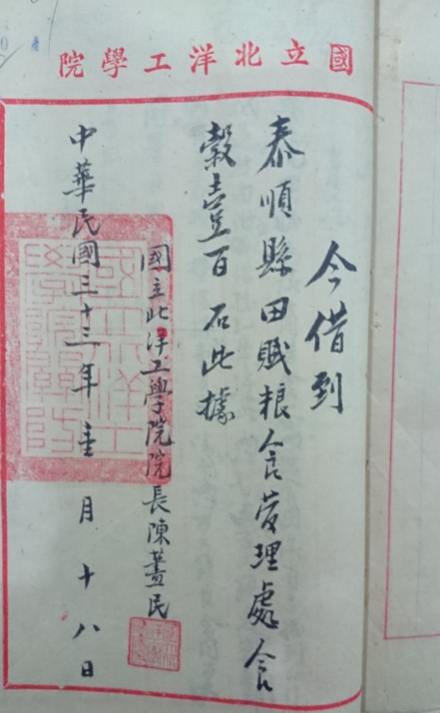 國立北洋工學院
今借到
泰順縣田賦粮食管理處食
穀壹百石此據
國立北洋工學院院長陳藎民
中華民國三十三年壹月十八日